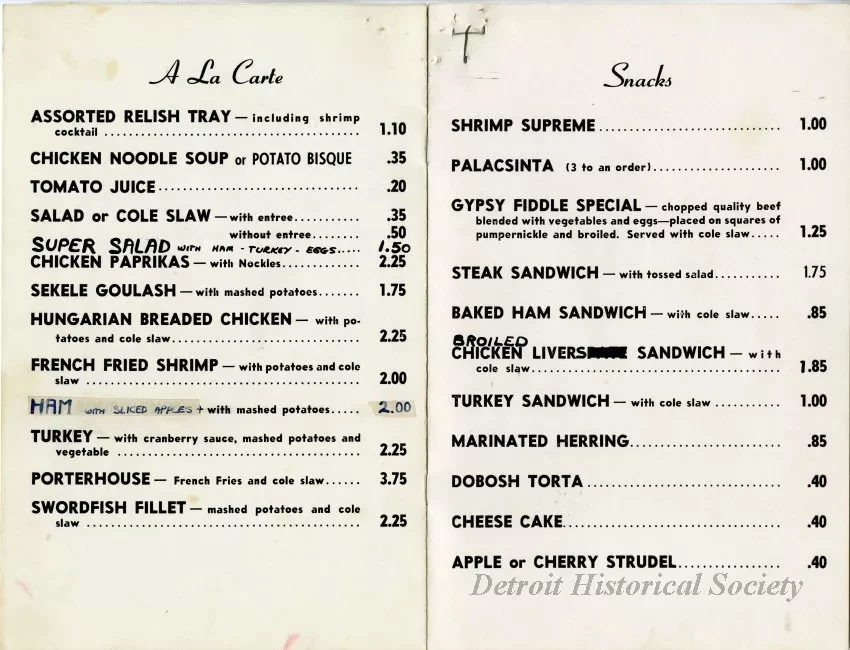 A La Carte
ASSORTED RELISH TRAY — including shrimp
cocktail ........................................ 1.10
CHICKEN NOODLE SOUP or POTATO BISQUE .35
TOMATO JUICE.................................. .20
SALAD or COLE SLAW — with entree........... .35
without entree........ .50
SUPER SALAD WITH HAM - TURKEY - EGGS..... 1.50
CHICKEN PAPRIKAS — with Nockles........... 2.25
SEKELE GOULASH — with mashed potatoes....... 1.75
HUNGARIAN BREADED CHICKEN — with po-
tatoes and cole slaw............................. 2.25
FRENCH FRIED SHRIMP — with potatoes and cole
slaw ............................................ 2.00
HAM WITH SLICED APPLES + with mashed potatoes..... 2.00
TURKEY — with cranberry sauce, mashed potatoes and
vegetable ....................................... 2.25
PORTERHOUSE — French Fries and cole slaw...... 3.75
SWORDFISH FILLET — mashed potatoes and cole
slaw ............................................ 2.25
T
Snacks
SHRIMP SUPREME.............................. 1.00
PALACSINTA (3 to an order)..................... 1.00
GYPSY FIDDLE SPECIAL — chopped quality beef
blended with vegetables and eggs—placed on squares of
pumpernickle and broiled. Served with cole slaw..... 1.25
STEAK SANDWICH — with tossed salad........... 1.75
BAKED HAM SANDWICH — with cole slaw..... .85
BROILED
CHICKEN LIVERS SANDWICH — with
cole slaw......................................... 1.85
TURKEY SANDWICH — with cole slaw ........... 1.00
MARINATED HERRING......................... .85
DOBOSH TORTA ................................ .40
CHEESE CAKE.................................... .40
APPLE or CHERRY STRUDEL................. .40
Detroit Historical Society